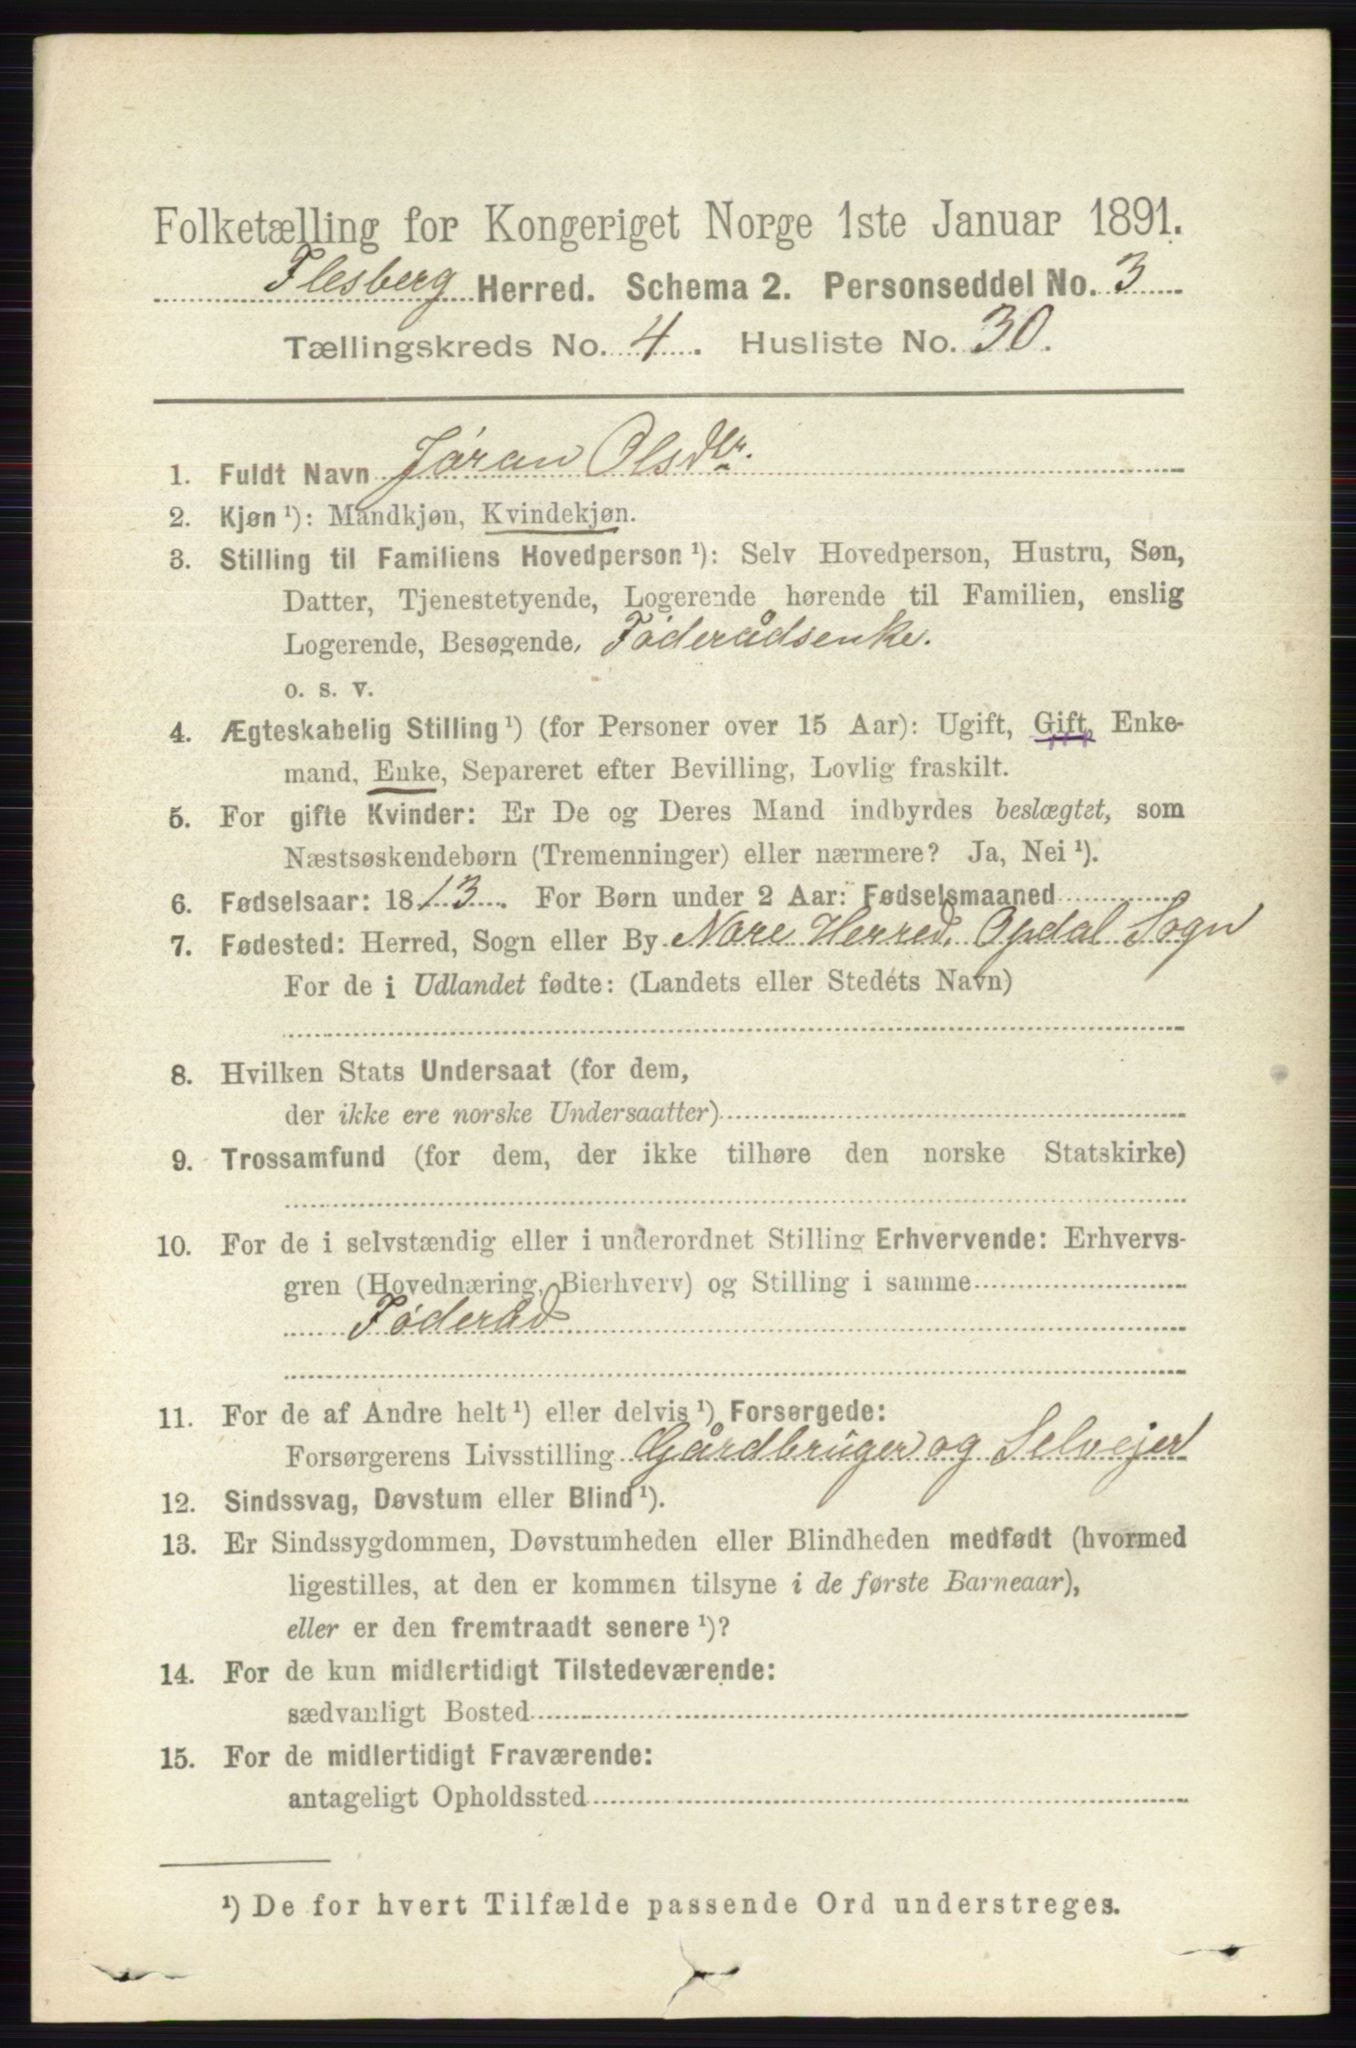 Folketælling for Kongeriget Norge 1ste Januar 1891.
Flesberg Herred. Schema 2. Personseddel No. 3
Tællingskreds No. 4. Husliste No. 30.
1. Fuldt Navn Jøran Olsdtr.
2. Kjøn ¹): Mandkjøn, Kvindekjøn.
3. Stilling til Familiens Hovedperson ¹): Selv Hovedperson, Hustru, Søn,
Datter, Tjenestetyende, Logerende hørende til Familien, enslig
Logerende, Besøgende, Føderådsenke.
o. s. v.
4. Ægteskabelig Stilling ¹) (for Personer over 15 Aar): Ugift, Gift, Enke-
mand, Enke, Separeret efter Bevilling, Lovlig fraskilt.
5. For gifte Kvinder: Er De og Deres Mand indbyrdes beslægtet, som
Næstsøskendebørn (Tremenninger) eller nærmere? Ja, Nei ¹).
6. Fødselsaar: 1813. For Børn under 2 Aar: Fødselsmaaned
7. Fødested: Herred, Sogn eller By Nore Herred, Opdal Sogn
For de i Udlandet fødte: (Landets eller Stedets Navn)
8. Hvilken Stats Undersaat (for dem,
der ikke ere norske Undersaatter)
9. Trossamfund (for dem, der ikke tilhøre den norske Statskirke)
10. For de i selvstændig eller i underordnet Stilling Erhvervende: Erhvervs-
gren (Hovednæring, Bierhverv) og Stilling i samme
Føderåd
11. For de af Andre helt ¹) eller delvis ¹) Forsørgede:
Forsørgerens Livsstilling Gårdbruger og Selvejer
12. Sindssvag, Døvstum eller Blind ¹).
13. Er Sindssygdommen, Døvstumheden eller Blindheden medfødt (hvormed
ligestilles, at den er kommen tilsyne i de første Barneaar),
eller er den fremtraadt senere ¹)?
14. For de kun midlertidigt Tilstedeværende:
sædvanligt Bosted
15. For de midlertidigt Fraværende:
antageligt Opholdssted
¹) De for hvert Tilfælde passende Ord understreges.